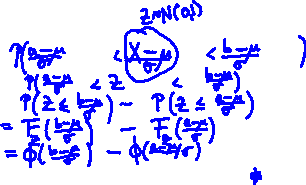 Z~N(0,1)
P(a-μ/σ < X-μ/σ < b-μ/σ)
P(a-μ/σ < Z < b-μ/σ)
P(Z ≤ b-μ/σ) - P(Z ≤ a-μ/σ)
= F_Z(b-μ/σ) - F_Z(a-μ/σ)
= Φ(b-μ/σ) - Φ(a-μ/σ)